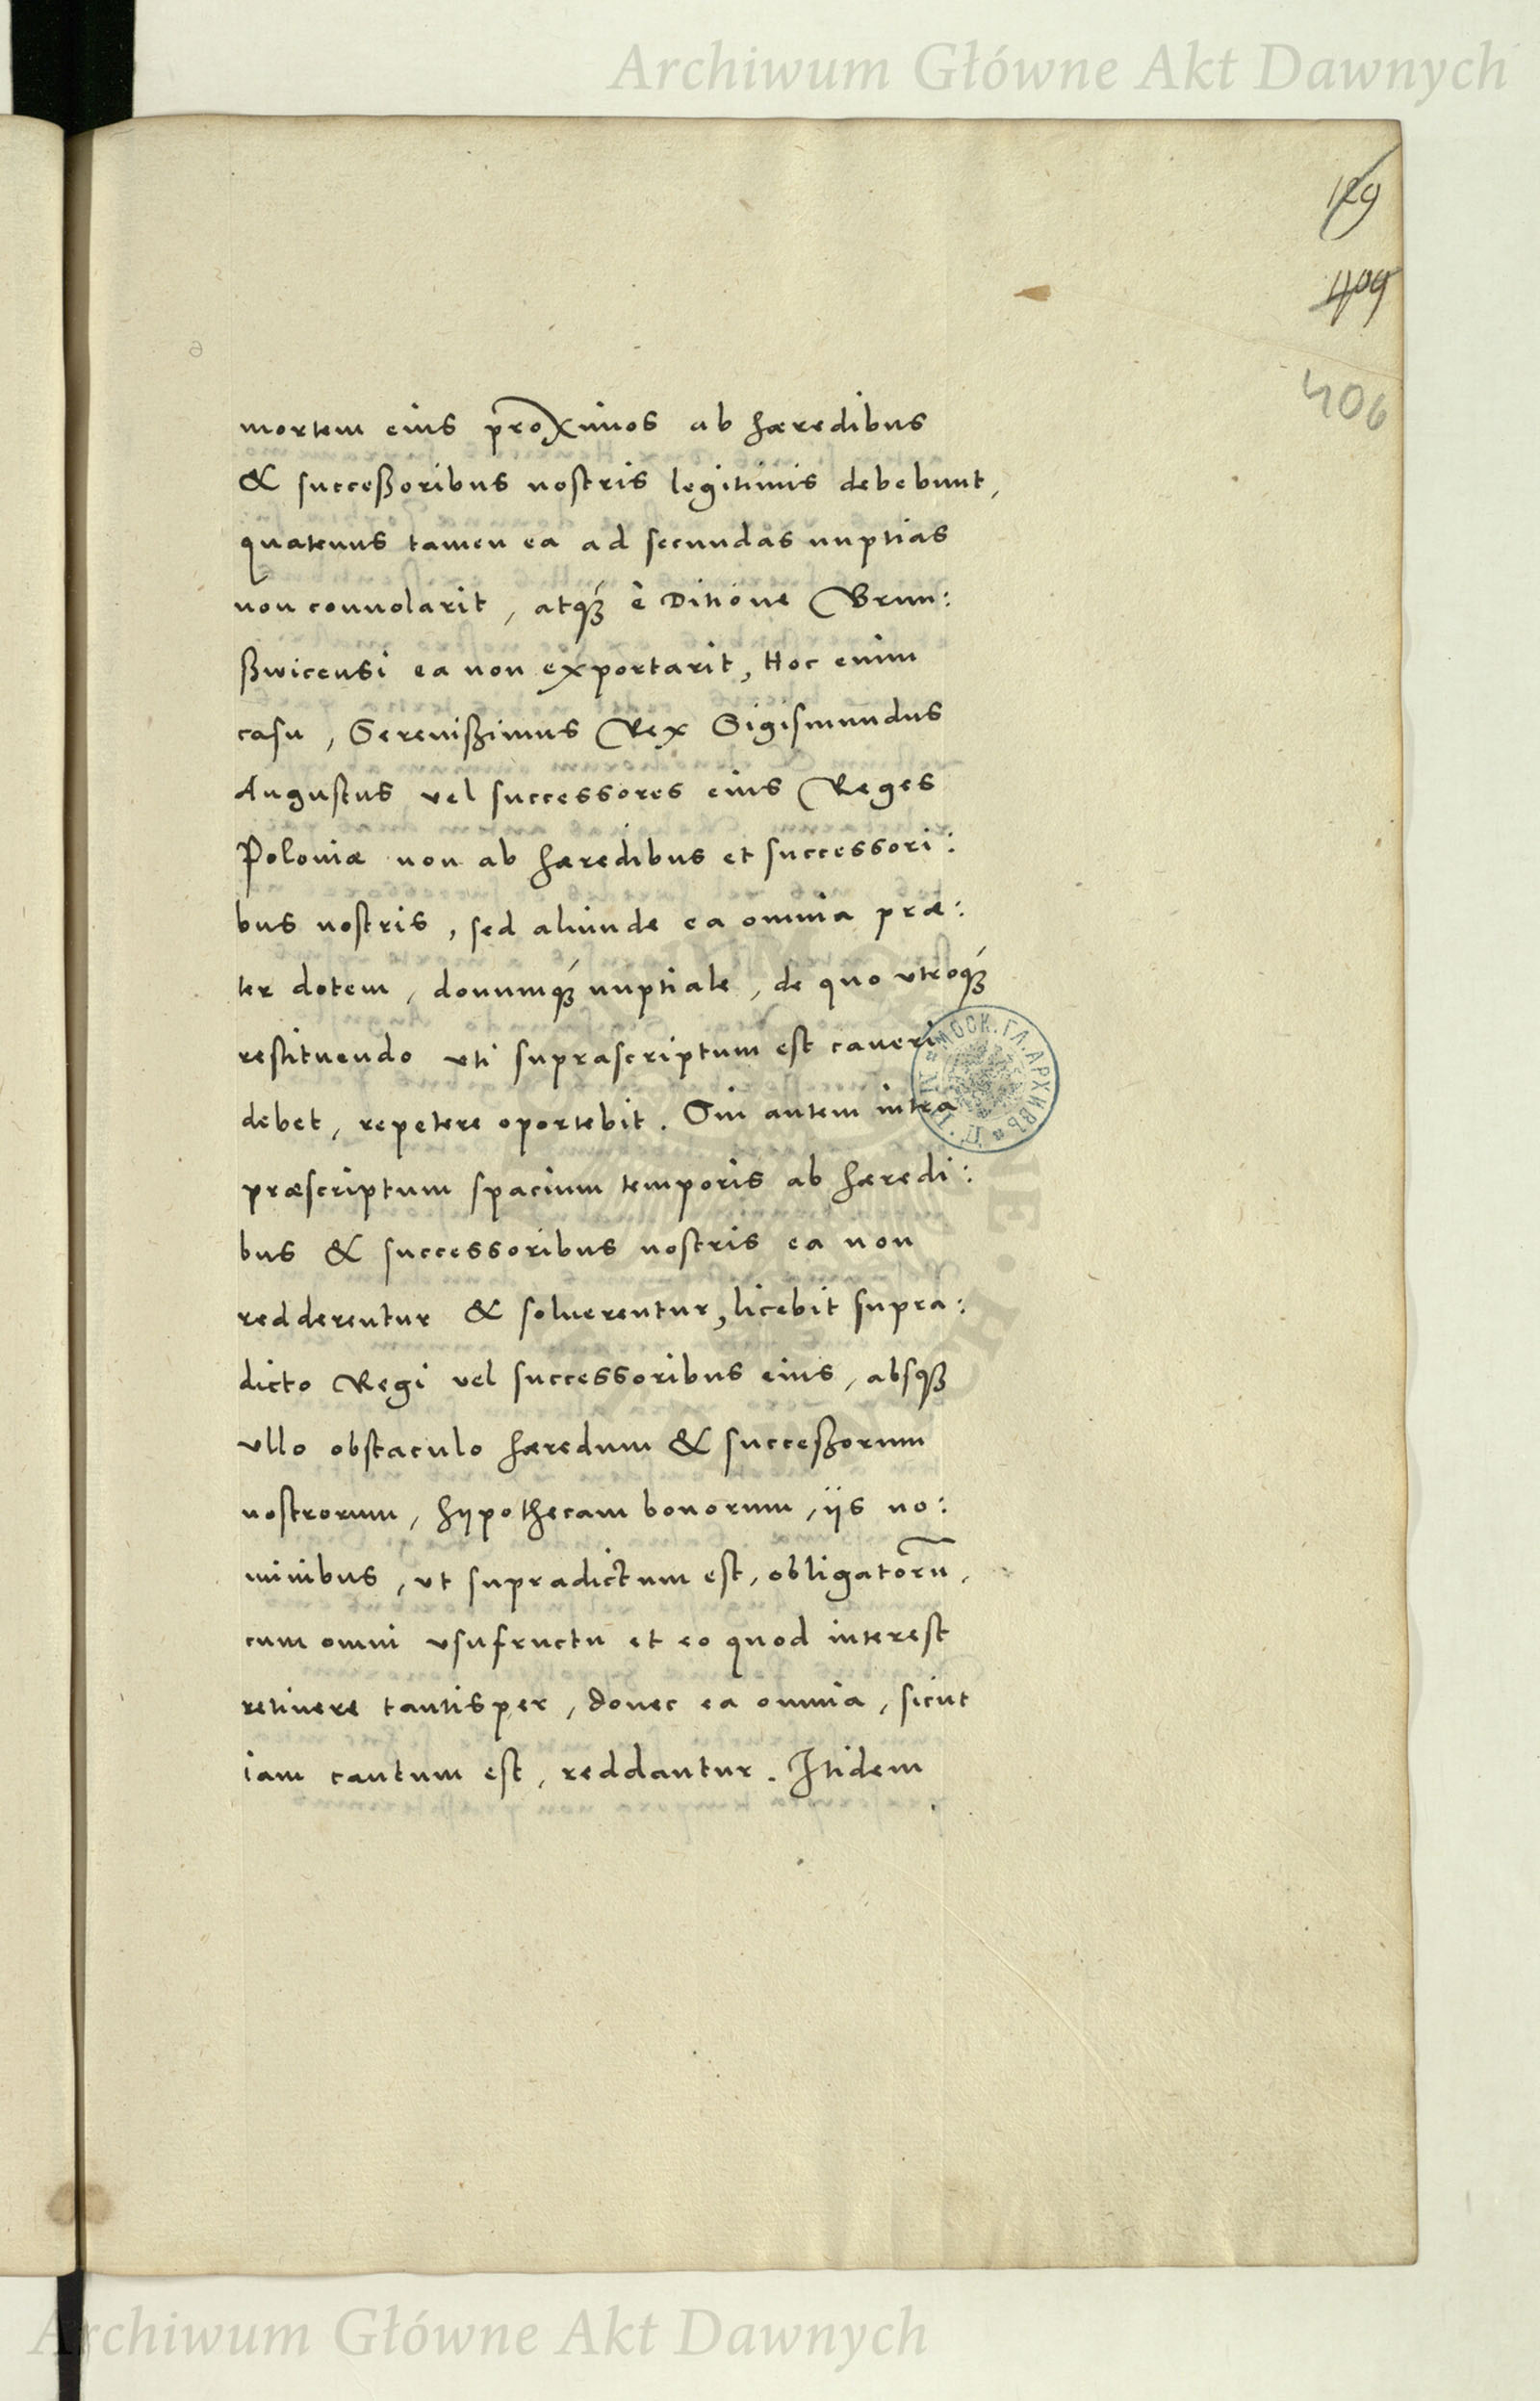 Archiwum Główne Akt Dawnych
129
409
406
mortem eius proximos ab hæredibus
& succeßoribus nostris legitimis debebunt,
quatenus tamen ea ad secundas nuptias
non conuolarit, atqꝫ è Ditione Brun:
ßwicensi ea non exportarit, Hoc enim
casu, Serenißimus Rex Sigismundus
Augustus vel successores eius Reges
Poloniæ non ab hæredibus et successori:
bus nostris, sed aliunde ea omnia præ:
ter dotem, donumqꝫ nuptiale, de quo vtroqꝫ
restituendo vti suprascriptum est caueri
debet, repetere oportebit. Sin autem intra
præscriptum spacium temporis ab hæredi:
bus & successoribus nostris ea non
redderentur & soluerentur, licebit supra:
dicto Regi vel successoribus eius, absqꝫ
vllo obstaculo hæredum & succeßorum
nostrorum, hypothecam bonorum, ijs no:
minibus, vt supradictum est, obligatorū,
cum omni vsufructu et eo quod interest
retinere tantisper, donec ea omnia, sicut
iam cautum est, reddantur. Itidem
МОСК. ГЛ. АРХИВЪ
Archiwum Główne Akt Dawnych